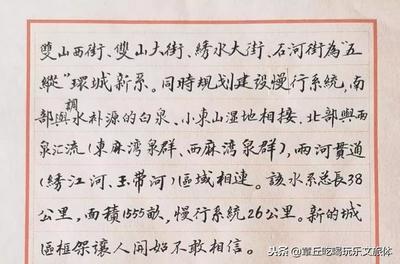 雙山西街、雙山大街、綉水大街、石河街為“五
縱”環城新系。同時規划建設慢行系統,南
調
部與水补源的白泉、小東山湿地相接,北部與西
泉汇流(東麻湾泉群、西麻湾泉群),兩河貫通
(綉江河、玉带河)區域相連。該水系总長38
公里,面積1555畝,慢行系統26公里。新的城
區框架讓人開始不敢相信。
头条@章丘吃喝玩乐文旅体